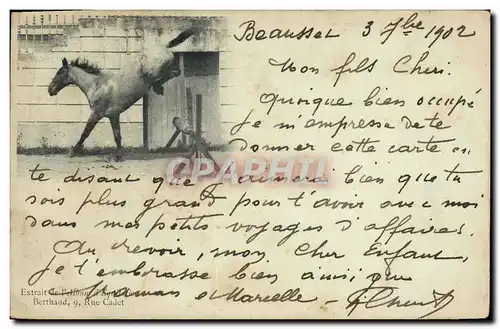 Beausset 3 7bre 1902
Mon fils Cheri.
Quoique bien occupé
Je m'empresse de te
donner cette carte en
te disant que J'aimerai bien que tu
sois plus grand pour t'avoir avec moi
dans mes petits voyages d'affaires.
Au revoir, mon cher Enfant,
Je t'embrasse bien ainsi que
maman et Marcelle -
CPARHIL
Extrait de l'Album
Berthaud, 9, Rue Cadet